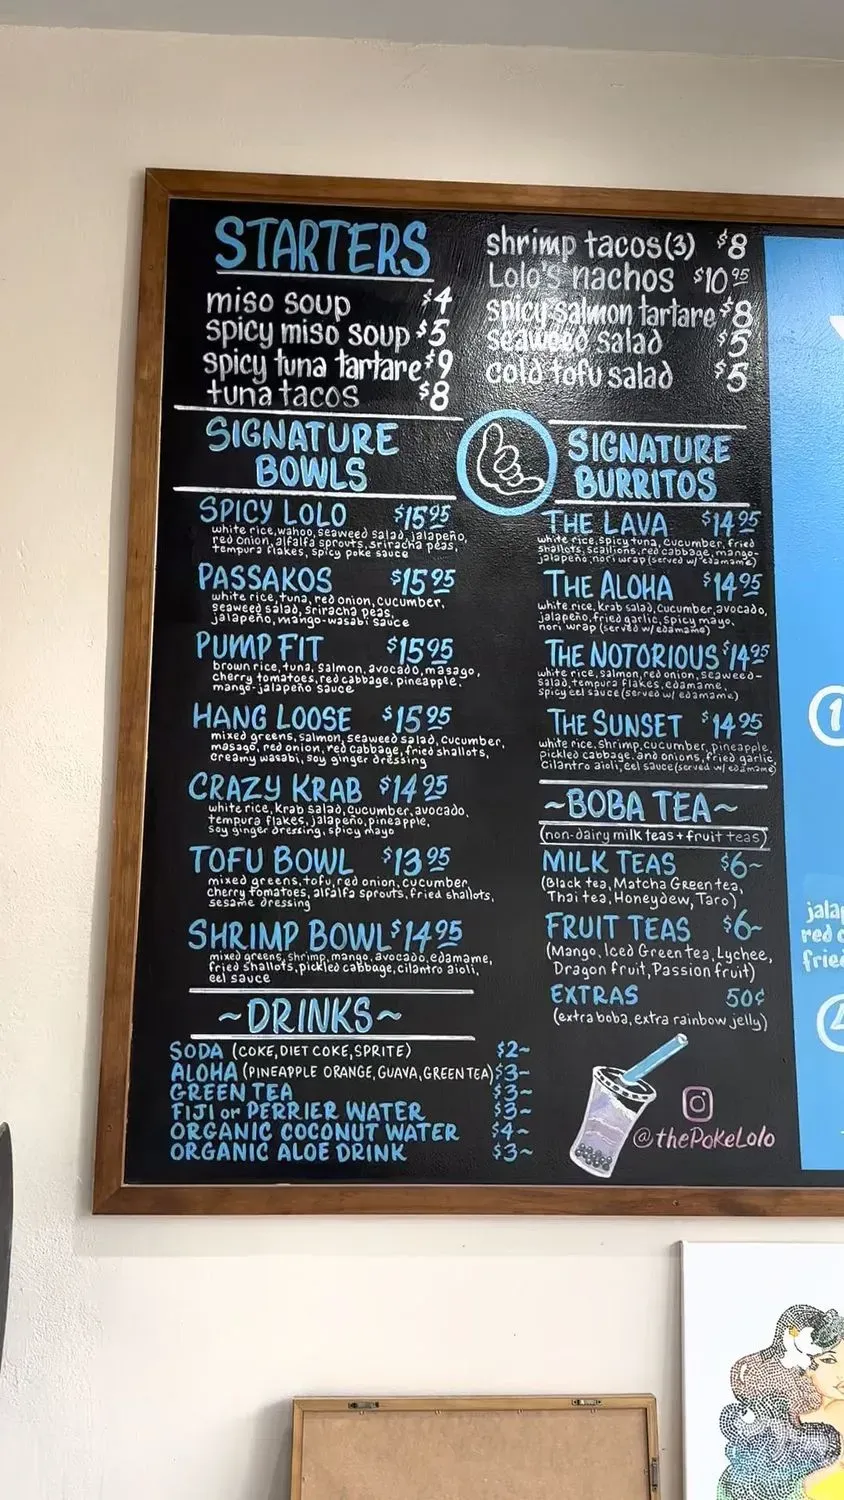 STARTERS
miso soup $4
spicy miso soup $5
spicy tuna tartare $9
tuna tacos $8
shrimp tacos(3) $8
Lolo's nachos $10 95
spicy salmon tartare $8
seaweed salad $5
cold tofu salad $5
SIGNATURE
BOWLS
SPICY LOLO $15 95
white rice, wahoo, seaweed salad, jalapeño,
red onion, alfalfa sprouts, sriracha peas,
tempura flakes, spicy poke sauce
PASSAKOS $15 95
white rice, tuna, red onion, cucumber,
seaweed salad, sriracha peas,
jalapeño, mango-wasabi sauce
PUMP FIT $15 95
brown rice, tuna, salmon, avocado, masago,
cherry tomatoes, red cabbage, pineapple,
mango-jalapeño sauce
HANG LOOSE $15 95
mixed greens, salmon, seaweed salad, cucumber,
masago, red onion, red cabbage, fried shallots,
creamy wasabi, soy ginger dressing
CRAZY KRAB $14 95
white rice, krab salad, cucumber, avocado,
tempura flakes, jalapeño, pineapple,
soy ginger dressing, spicy mayo
TOFU BOWL $13 95
mixed greens, tofu, red onion, cucumber
cherry tomatoes, alfalfa sprouts, fried shallots,
sesame dressing
SHRIMP BOWL $14 95
mixed greens, shrimp, mango, avocado, edamame,
fried shallots, pickled cabbage, cilantro aioli,
eel sauce
~DRINKS~
SODA (COKE, DIET COKE, SPRITE) $2~
ALOHA (PINEAPPLE ORANGE, GUAVA, GREEN TEA) $3~
GREEN TEA $3~
FIJI or PERRIER WATER $3~
ORGANIC COCONUT WATER $4~
ORGANIC ALOE DRINK $3~
SIGNATURE
BURRITOS
THE LAVA $14 95
white rice, spicy tuna, cucumber, fried
shallots, scallions, red cabbage, mango-
jalapeño, nori wrap (served w/ edamame)
THE ALOHA $14 95
white rice, krab salad, cucumber, avocado,
jalapeño, fried garlic, spicy mayo,
nori wrap (served w/ edamame)
THE NOTORIOUS $14 95
white rice, salmon, red onion, seaweed-
salad, tempura flakes, edamame,
spicy eel sauce (served w/ edamame)
THE SUNSET $14 95
white rice, shrimp, cucumber, pineapple,
pickled cabbage, and onions, fried garlic,
cilantro aioli, eel sauce (served w/ edamame)
~BOBA TEA~
(non-dairy milk teas + fruit teas)
MILK TEAS $6~
(Black tea, Matcha Green tea,
Thai tea, Honeydew, Taro)
FRUIT TEAS $6~
(Mango, Iced Green tea, Lychee,
Dragon fruit, Passion fruit)
EXTRAS 50¢
(extra boba, extra rainbow jelly)
@thePokeLolo
1
jala
red
fried